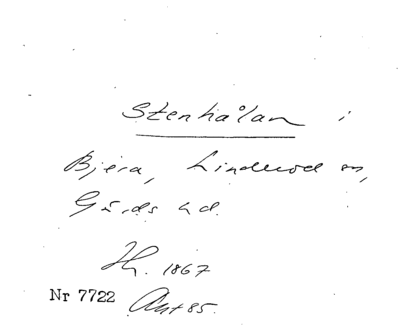 Stenhålan i
Bjära, Linderöd sn,
Gärds hd.
Hn. 1867
Nr 7722 Avskr 85.